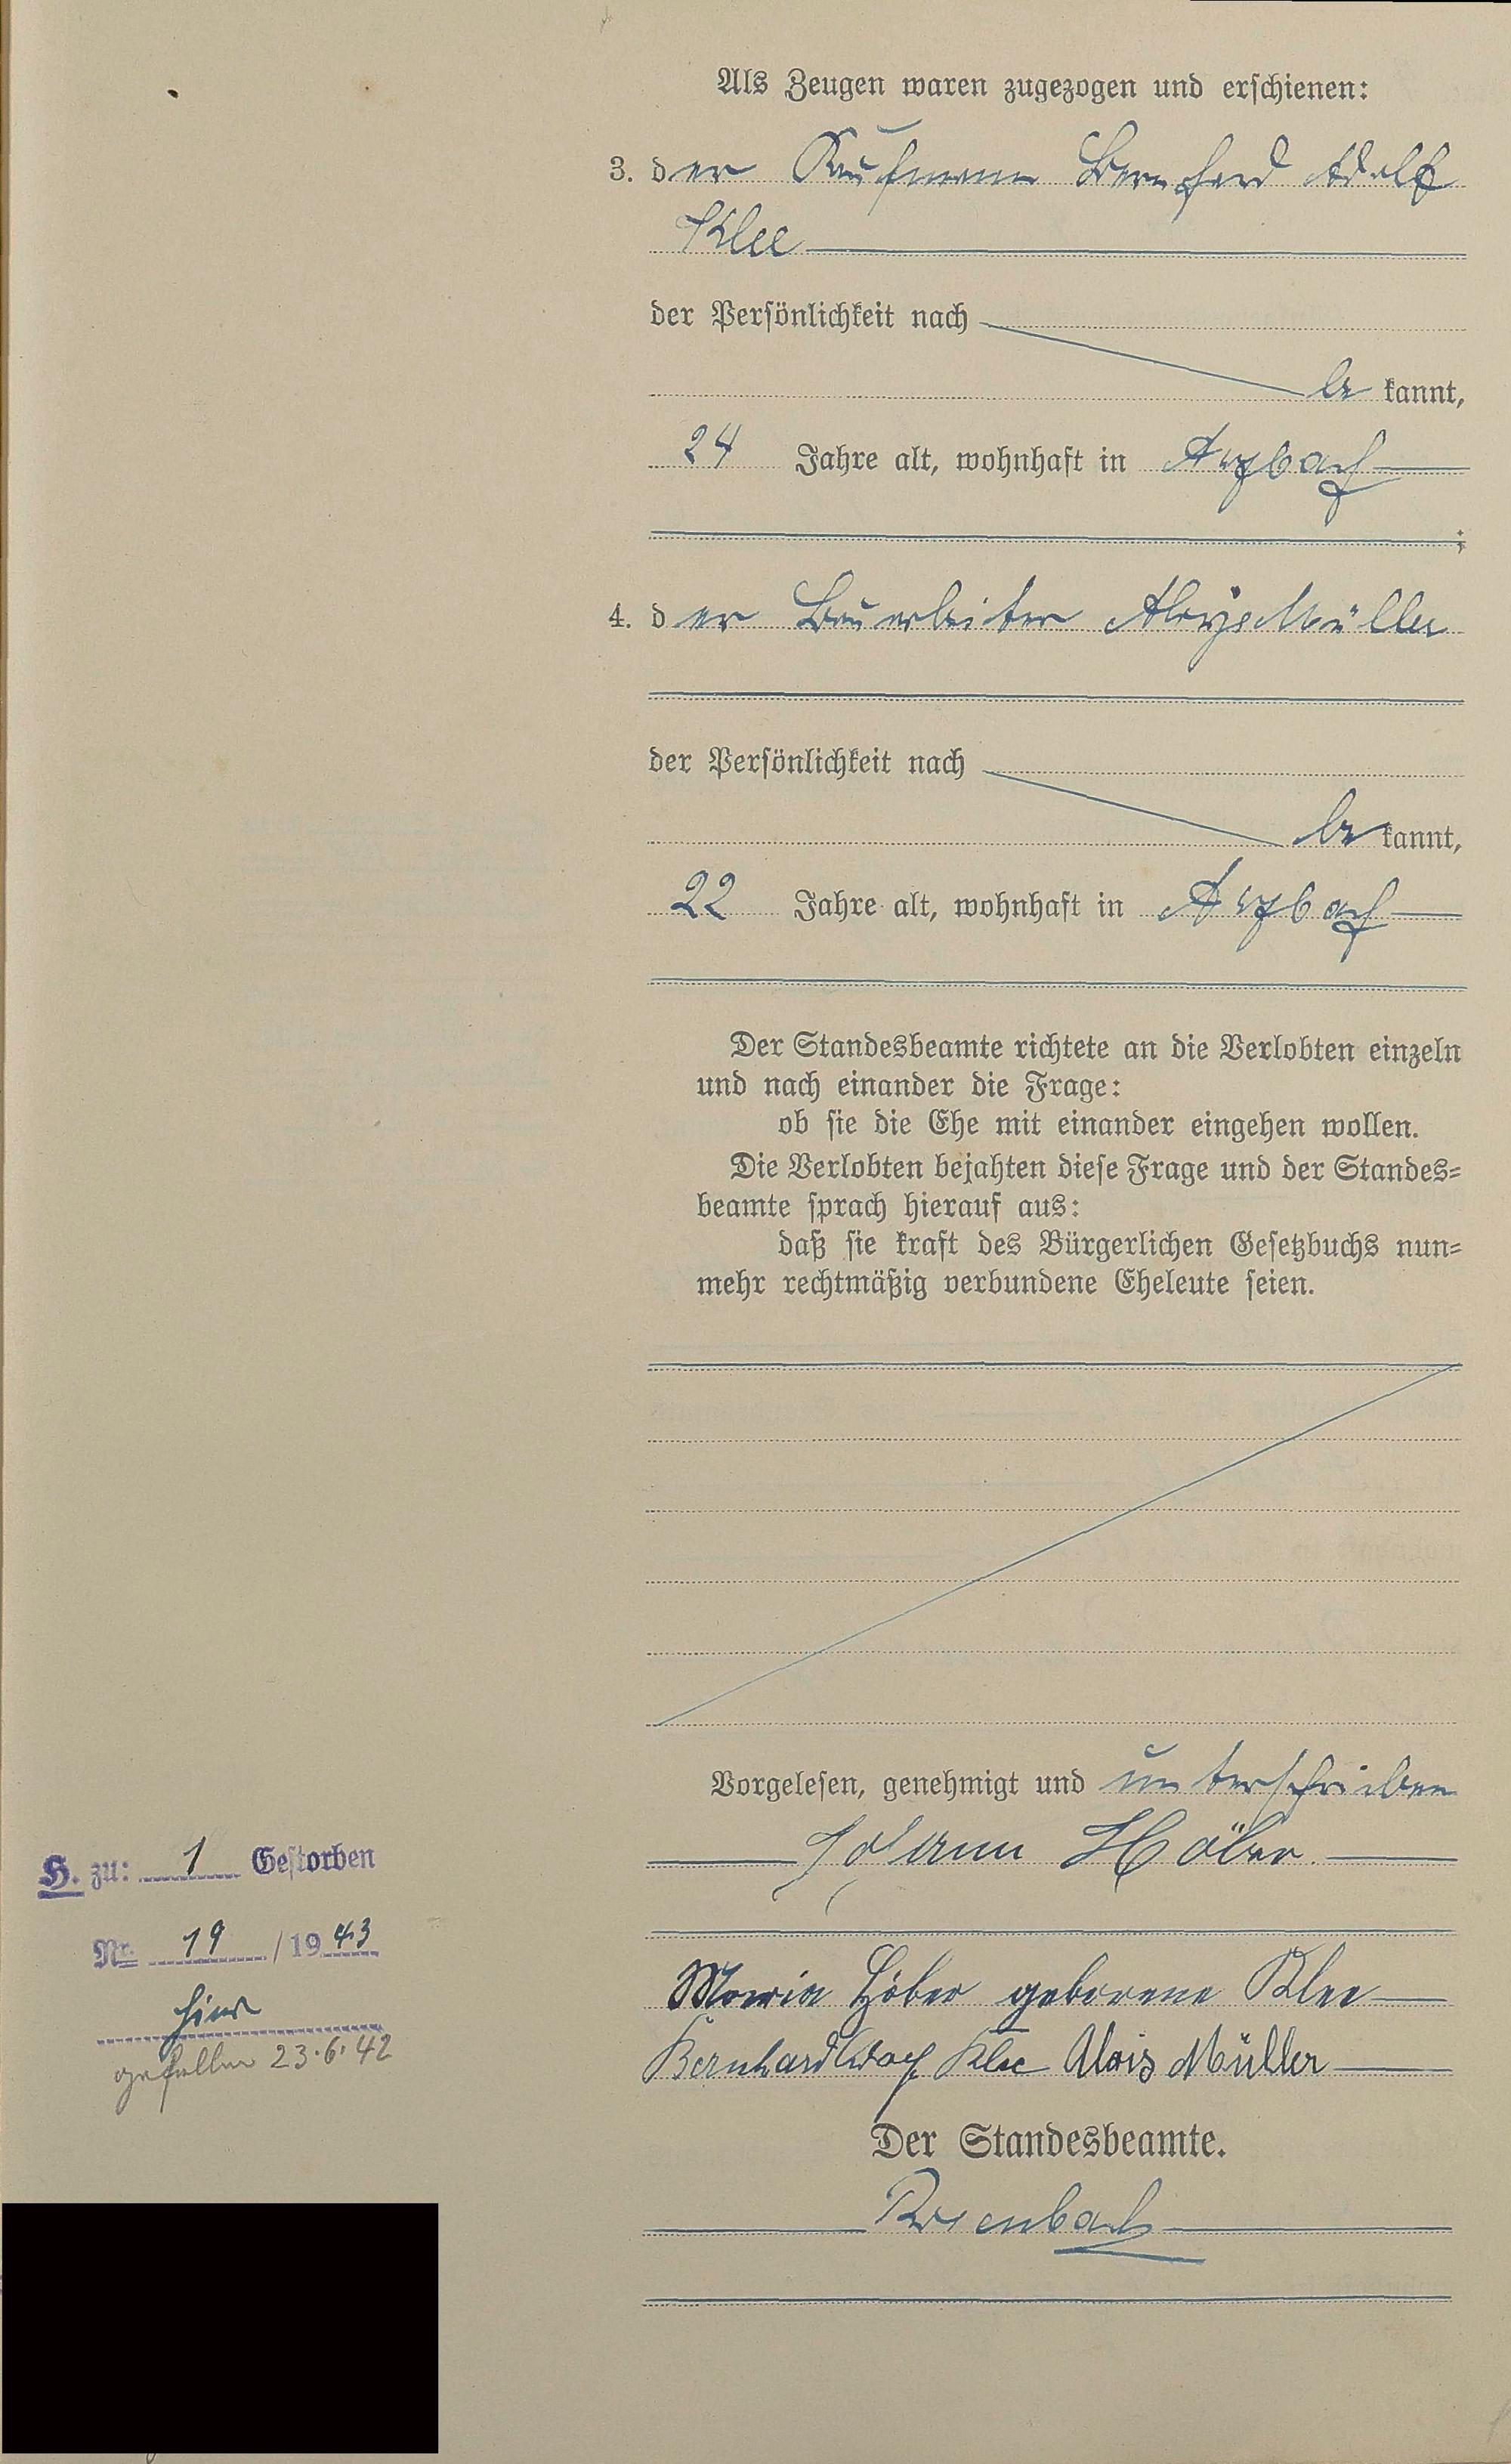 Als Zeugen waren zugezogen und erschienen:
3. der Kaufmann Bernhard Adolf
Klee
der Persönlichkeit nach
be kannt,
24 Jahre alt, wohnhaft in Arzbach
;
4. der Bauarbeiter Aloys Müller
der Persönlichkeit nach
be kannt,
22 Jahre alt, wohnhaft in Arzbach
Der Standesbeamte richtete an die Verlobten einzeln
und nach einander die Frage:
ob sie die Ehe mit einander eingehen wollen.
Die Verlobten bejahten diese Frage und der Standes=
beamte sprach hierauf aus:
daß sie kraft des Bürgerlichen Gesetzbuchs nun=
mehr rechtmäßig verbundene Eheleute seien.
Vorgelesen, genehmigt und unterschrieben
Johann Höber.
Maria Höber geborene Klee
Bernhard Adolf Klee Alois Müller
Der Standesbeamte.
H. zu: 1 Gestorben
Nr. 19 / 1943
hier
gefallen 23.6.42